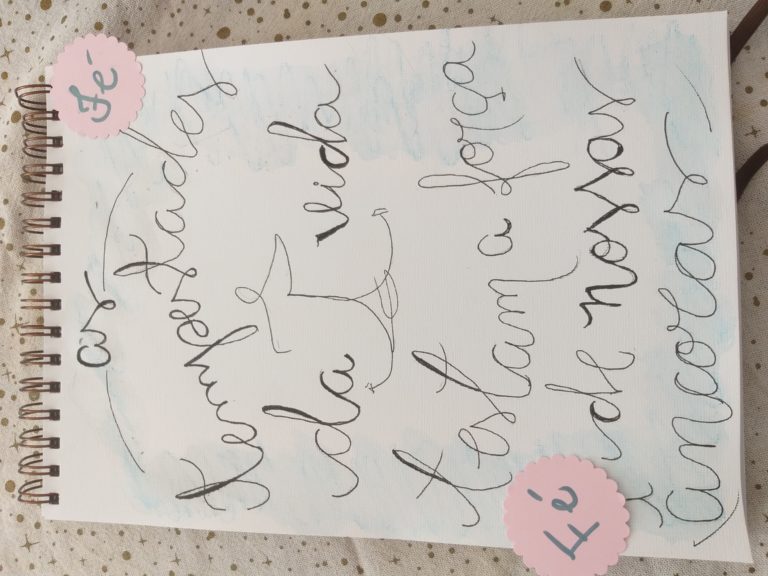 Fé
as
tempestades
da vida
testam a força
de nossas
âncoras
Fé